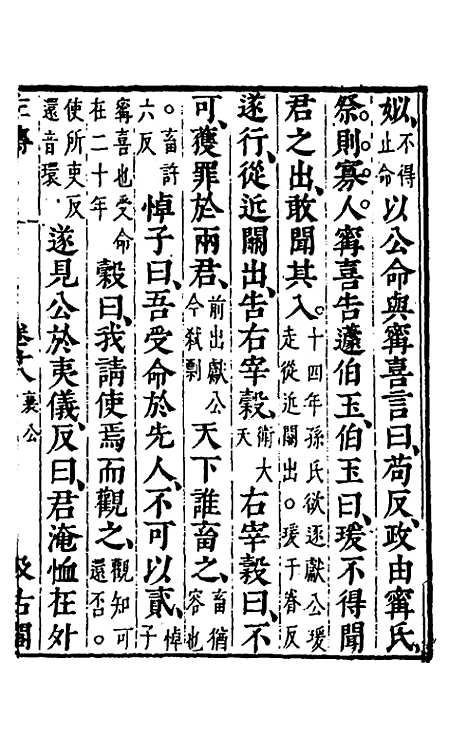 姒、不得止命以公命與甯喜言曰、苟反、政由甯氏、
祭則寡人。甯喜告蘧伯玉、伯玉曰、瑗不得聞
君之出、敢聞其入。十四年孫氏欲逐獻公瑗走從近關出。瑗于眷反
遂行、從近關出、告右宰穀、衛大夫右宰穀曰、不
可、獲罪於兩君、前出獻公今弑剽天下誰畜之、畜猶容也
。畜許六反悼子曰、吾受命於先人、不可以貳、悼子
甯喜也受命在二十年穀曰、我請使焉而觀之、觀知可還否。
使所吏反還音環。遂見公於夷儀、反曰、君淹恤在外
卷十八 襄公
汲古閣